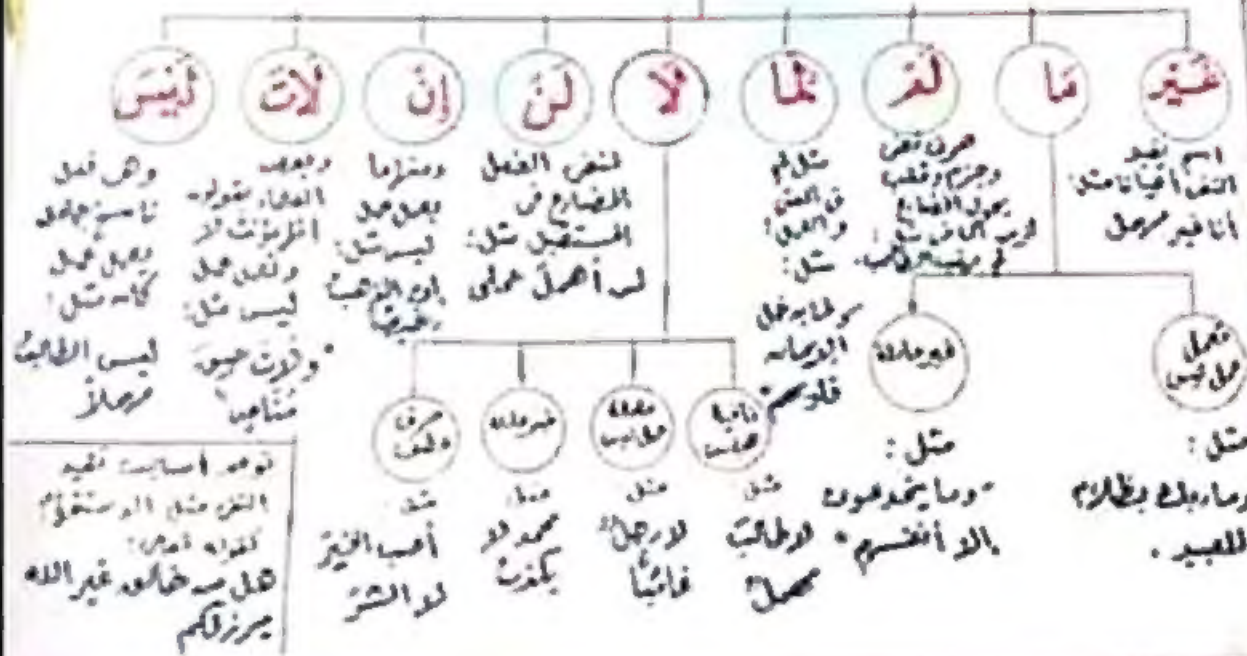 غَيْر
اسم يفيد
النفى أحيانا مثل:
أنا غير مهمل
مَا
تعمل
عمل ليس
مثل:
وما ربك بظلام
للعبيد.
غير عاملة
مثل:
"وما يخدعون
إلا أنفسهم"
لَمْ
حرف نفى
وجزم وقلب
يحول المضارع
لَمَّا
مثل لم
فى النفى
والعمل؛
مثل:
ولما يدخل
الإيمان
قلوبهم"
لَا
نافية
للجنس
مثل
لا طالبَ
مهملٌ
عاملة
عمل ليس
مثل
لا رجلٌ
غائبًا
غير عاملة
مثل
محمد لا
يكذبُ
حرف
عطف
مثل
أحب الخيرَ
لا الشرَّ
لَنْ
لنفى الفعل
المضارع فى
المستقبل مثل:
لن أهملَ عملى
إِنْ
ومنها ما
يعمل عمل
ليس مثل:
إن الذهبُ
لَاتَ
وبعض
العلماء يقولون
وتعمل عمل
ليس مثل:
"ولات حينَ
مناص"
لَيْسَ
وهى فعل
ناسخ جامد
يعمل عمل
كان مثل:
ليس الطالبُ
مهملاً
توجد أساليب تفيد
النفى مثل الاستفهام
كقوله تعالى:
هل من خالق غير الله
يرزقكم